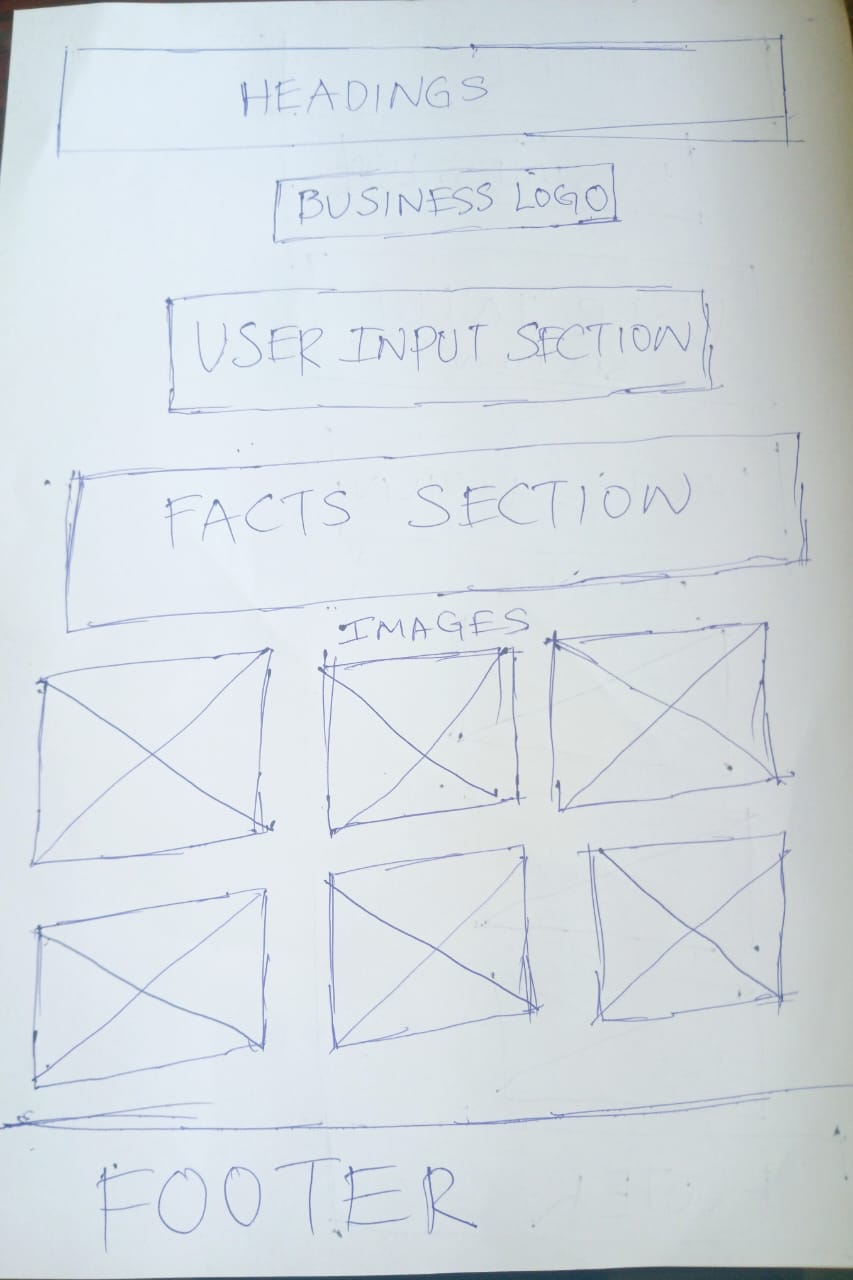 HEADINGS
BUSINESS LOGO
USER INPUT SECTION
FACTS SECTION
IMAGES
FOOTER